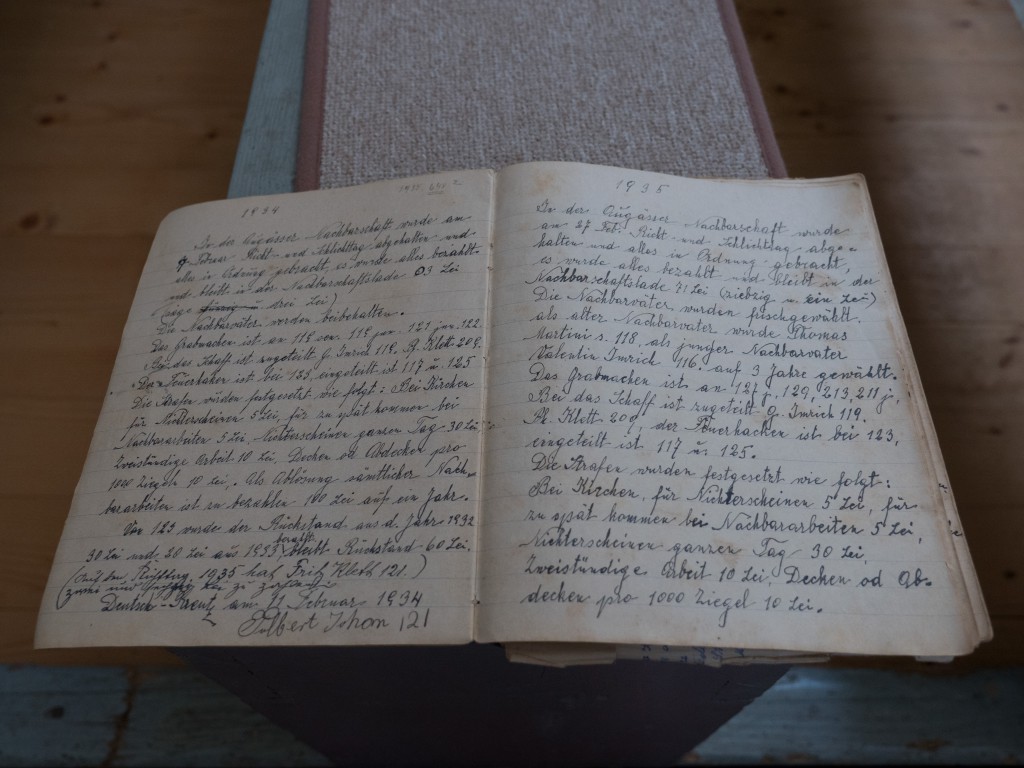 1934
In der Augässer Nachbarschaft wurde am
9 Februar Richt und Schlichttag abgehalten und
alles in Ordnung gebracht, es wurde alles bezahlt
und bleibt in der Nachbarschaftslade 03 Lei
drei Lei)
Die Nachbarväter werden beibehalten.
Das Grabmachen ist an 118 119 jun. 121 jun. 122.
Bei das Schaff ist zugeteilt G. Imrich 119, Pf. Klett 209.
Der Feuerhaken ist bei 123, eingeteilt ist 117 u 125
Die Strafen wurden festgesetzt wie folgt: Bei Kirchen
für Nichterscheinen 5 Lei, für zu spät kommen bei
Nachbararbeiten 5 Lei, Nichterscheinen ganzen Tag 30 Lei
Zweistündige Arbeit 10 Lei. Decken od Abdecken pro
1000 Ziegen 10 Lei. Als Ablösung sämtlicher Nach
bararbeiten ist zu bezahlen 100 Lei auf ein Jahr.
Von 123 wurde der Rückstand aus d. Jahr 1932
30 Lei und 20 Lei aus 1933 bezahlt bleibt Rückstand 60 Lei.
1935 hat Frih. Kleth 121.)
zu
Deutsch-Kreuz am 11 Februar 1934
Johan 121
1935
In der Augässer Nachbarschaft wurde
am 27 Feb. Richt und Schlichttag abge=
halten und alles in Ordnung gebracht,
es wurde alles bezahlt und bleibt in der
Nachbarschaftslade 71 Lei (ziebzig u. ein Lei)
Die Nachbarväter wurden frischgewählt.
als alter Nachbarvater wurde Thomas
Martini s. 118. als junger Nachbarvater
Valentin Imrich 116. auf 3 Jahre gewählt.
Das Grabmachen ist an 127 j, 129, 213, 211 j,
Bei das Schaff ist zugeteilt G. Imrich 119.
Pf. Klett 209, der Feuerhacken ist bei 123,
eingeteilt ist 117 u. 125.
Die Strafen wurden festgesetzt wie folgt:
Bei Kirchen, für Nichterscheinen 5 Lei, für
zu spät kommen bei Nachbararbeiten 5 Lei,
Nichterscheinen ganzen Tag 30 Lei,
Zweistündige Arbeit 10 Lei, Decken od Ab=
decken pro 1000 Ziegel 10 Lei.